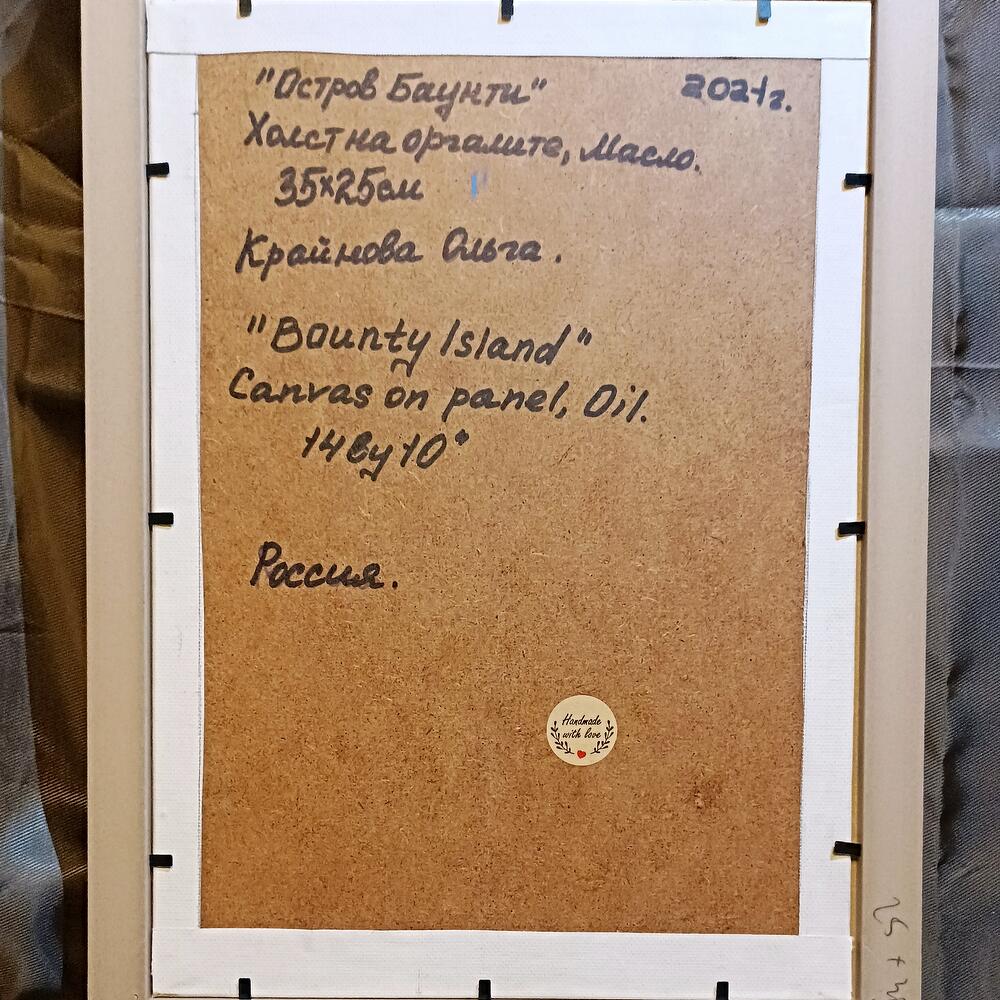 "Остров Баунти" 2021г.
Холст на оргалите, Масло.
35×25см
Крайнова Ольга.
"Bounty Island"
Canvas on panel, Oil.
14 by 10"
Россия.
Handmade
with love